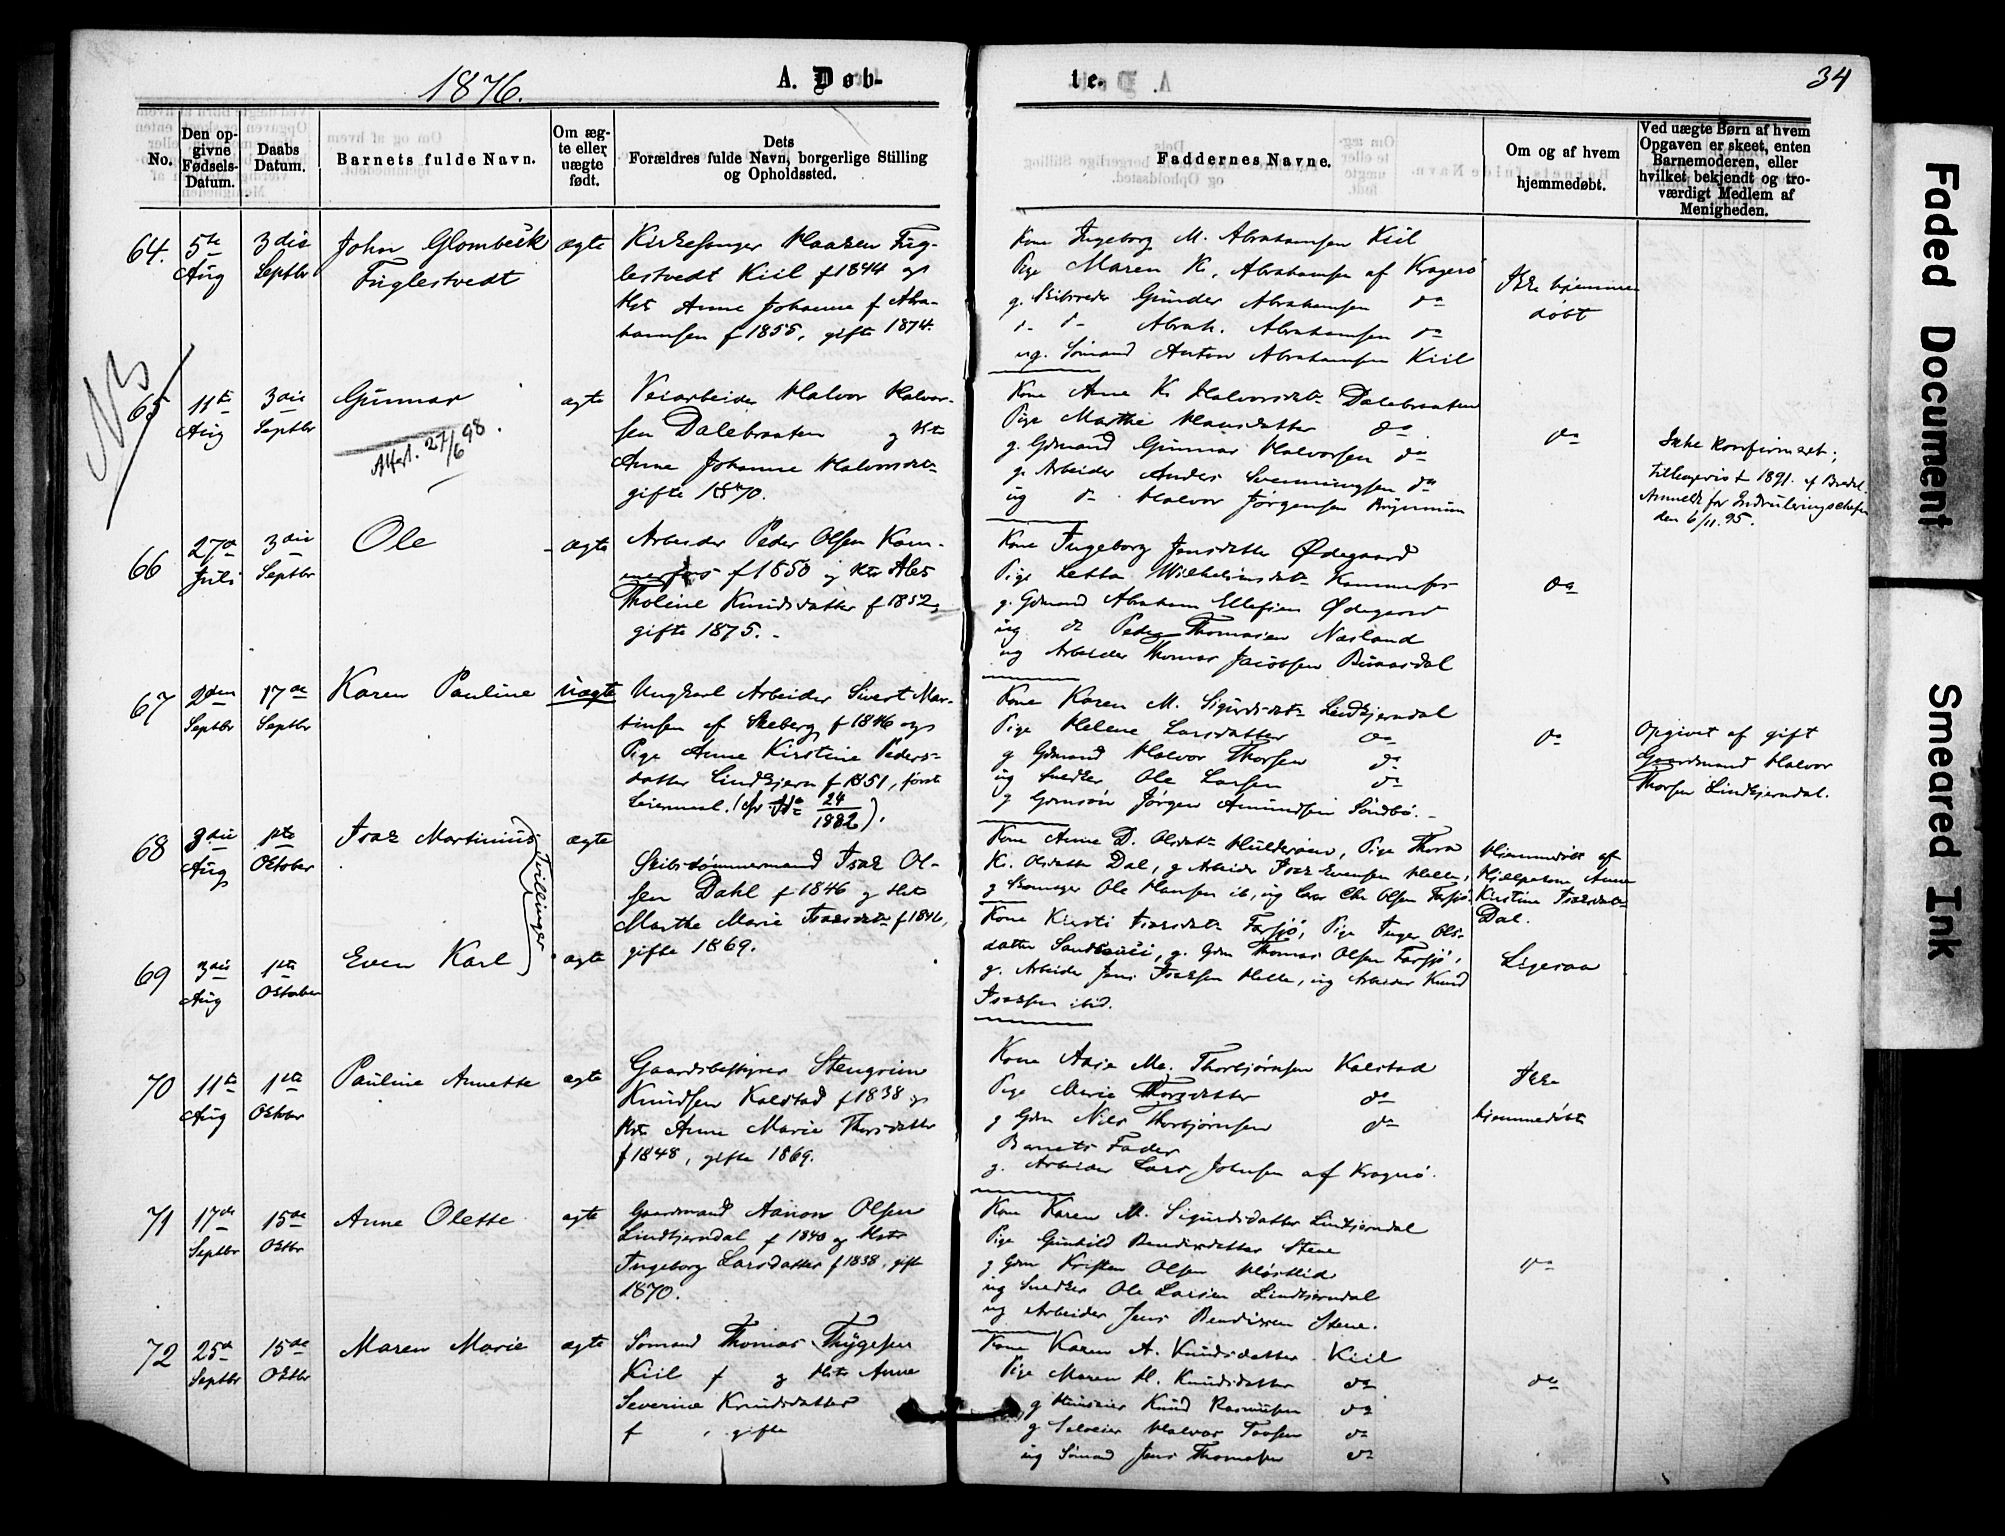 1876.
A. Døb-
te.
34
No.
Den op-
givne
Fødsels-
Datum.
Daabs
Datum.
Barnets fulde Navn.
Om æg-
te eller
uægte
født.
Dets
Forældres fulde Navn, borgerlige Stilling
og Opholdssted.
Faddernes Navne.
Om og af hvem
hjemmedøbt.
Ved uægte Børn af hvem
Opgaven er skeet, enten
Barnemoderen, eller
hvilket bekjendt og tro-
værdigt Medlem af
Menigheden.
64.
5te
Aug
3die
Septbr
John Glombek
Fuglestvedt
ægte
Kirkesanger Haaken Fug-
lestvedt Kiil f 1844 og
Hst Anne Johanne f Abra-
hamsen f 1855, gifte 1874.
Kone Ingeborg M. Abrahamsen Kiil
Pige Maren K. Abrahamsen af Kragerø
g. Skibsreder Gunder Abrahamsen do
do do Abrah. Abrahamsen do
ug. Sømand Anton Abrahamsen Kiil
Ikke hjemme
døbt
NB
65
11te
Aug
3die
Septbr
Gunnar
Attest. 27/6 98.
ægte
Veiarbeider Halvor Halvor-
sen Dalebraaten og Hst
Anne Johanne Halvorsdtr
gifte 1870.
Kone Anne K. Halvorsdtr Dalebraaten
Pige Marthe Hansdatter do
g. Gdmand Gunnar Halvorsen do
g. Arbeider Anders Svenningsen do
ug do Halvor Jørgensen
do
Ikke konfirmeret;
1891 af
Anmeldt for Indrulleringschefen
den 6/11 95.
66
27de
Juli
3die
Septbr
Ole
ægte
Arbeider Peder Olsen Kam-
merfos f 1850 og Hst Ales
Tholine Knudsdatter f 1852,
gifte 1875.
Kone Ingeborg Jensdatter Ødegaard
Pige Letta Wilhelmsdtr Kammerfos
g. Gdmand Abraham Ellefsen Ødegaard
ug do Peder Thomasen Næsland
ug Arbeider Thomas Jacobsen
do
67
2den
Septbr
17de
Septbr
Karen Pauline
uægte
Ungkarl Arbeider Sivert Mar-
tinsen af Skeberg f 1846 og
Pige Anne Kirstine Peders-
datter Lindkjern f 1851, første
Leiermaal. (24/1882).
Kone Karen M. Sigurdsdtr Lindkjerndal
Pige Helene Larsdatter do
g Gdmand Halvor Thorsen do
ug Snedker Ole Larsen do
g Gdmsøn Jørgen Amundsen Sandbø.
do
Opgivet af gift
Gaardmand Halvor
Thorsen Lindkjerndal.
68
3die
Aug
1ste
Oktober
Isak Martinius
(Tvillinger)
ægte
Skibstømmermand Isak Ol-
sen Dahl f 1846 og Hst
Marthe Marie Isaksdtr f 1846,
gifte 1869.
Kone Anne D. Olsdtr Hulderøen, Pige Thora
K. Olsdatter Dal, g Arbeider Isak Evensen Helle,
g Skomager Ole Hansen ib, ug Chr Olsen Farsjø.
Hjemmedøbt af
Hjelpekone Anne
Kirstine Isaksdtr
Dal.
69
3die
Aug
1ste
Oktober
Even Karl
ægte
Kone Kirsti Isaksdtr Farsjø, Pige Inger Ols-
datter, g. Gdm Thomas Olsen Farsjø,
g. Arbeider Jens Isaksen Helle, ug Arbeider Knud
Isaksen ibid.
Ligesaa
70
11te
Aug
1ste
Oktbr
Pauline Annette
ægte
Gaardsbestyrer Stengrim
Knudsen Kalstad f 1838 og
Hst Anne Marie Thorsdatter
f 1848, gifte 1869.
Kone Aase Ma. Thorbjørnsen Kalstad
Pige Marie Thorsdatter do
g Gdm Nils Thorbjørnsen do
Barnets Fader
g. Arbeider Lars Johnsen af Kragerø.
Ikke
hjemmedøbt
71
17de
Septbr
15de
Oktbr
Anne Olette
ægte
Gaardmand Aanon Olsen
Lindtjerndal f 1840 og Hst
Ingeborg Larsdatter f 1838, gifte
1870.
Kone Karen M. Sigurdsdatter Lindtjerndal
Pige Gunhild Bendixdatter Stene
g Gdm Kristen Olsen
ug Snedker Ole Larsen Lindtjerndal
ug Arbeider Jens Bendixen Stene.
do
72
25de
Septbr
15de
Oktbr
Maren Marie
ægte
Sømand Thomas Thygesen
Kiil f og Hst Anne
Severine Knudsdatter
f , gifte
Kone Karen A. Knudsdatter Kiil
Pige Maren H. Knudsdatter do
g Husmier Knud Rasmusen do
g Selveier Halvor Torsen do
ug Sømand Jens Thomasen do
do
Faded Document
Smeared Ink